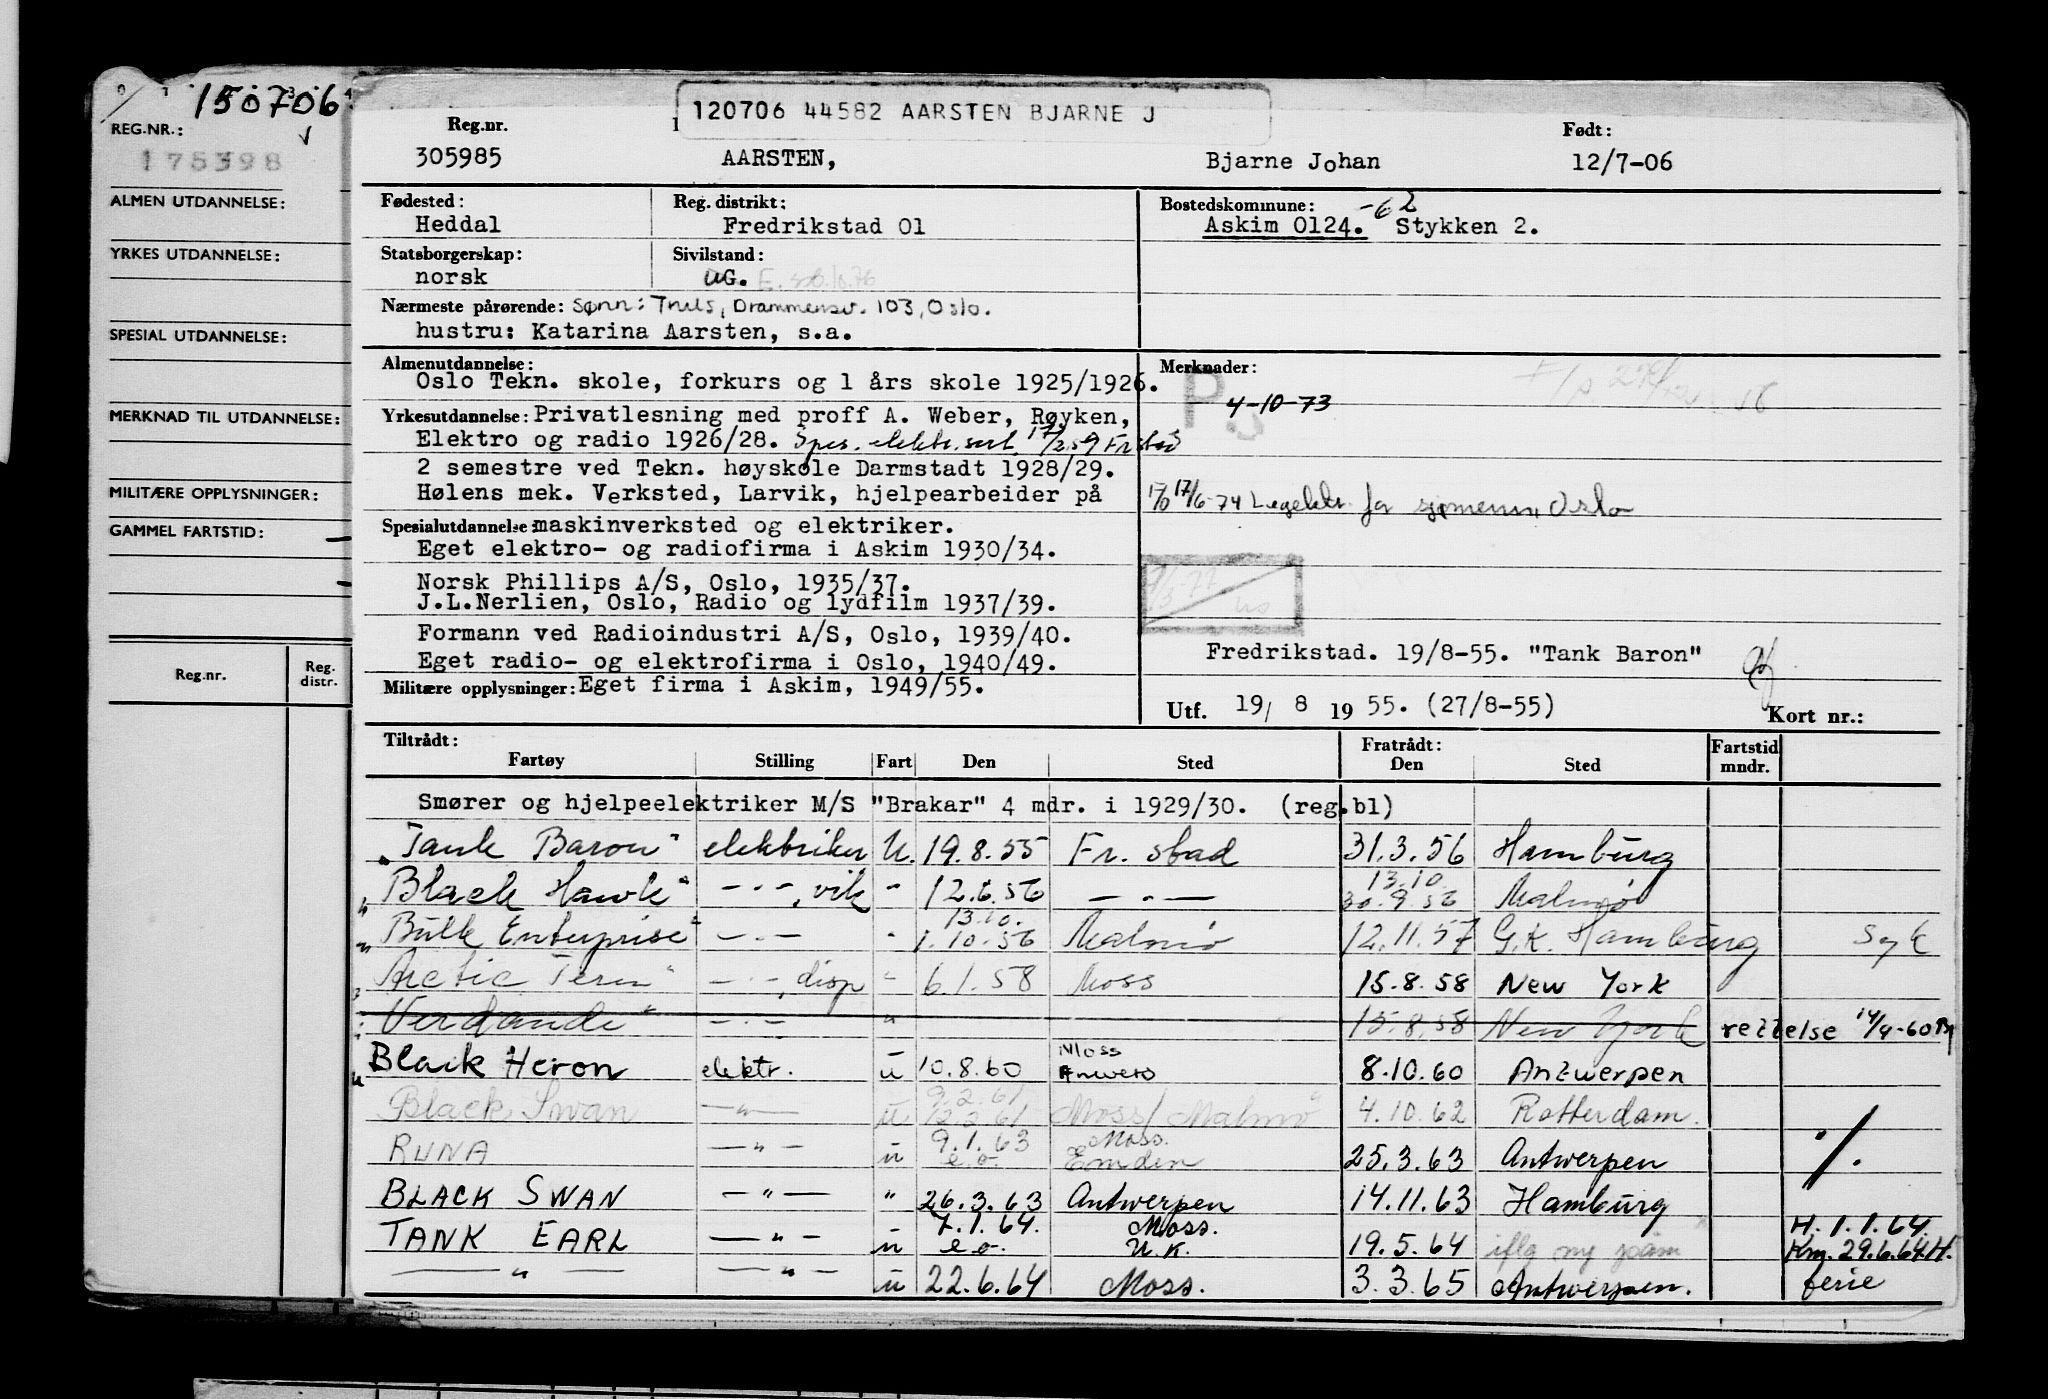 150706
REG.NR.:
175398
ALMEN UTDANNELSE:
YRKES UTDANNELSE:
SPESIAL UTDANNELSE:
MERKNAD TIL UTDANNELSE:
MILITÆRE OPPLYSNINGER:
GAMMEL FARTSTID:
Reg.nr. Reg. distr.
120706 44582 AARSTEN BJARNE J
Reg.nr. Født:
305985 AARSTEN, Bjarne Johan 12/7-06
Fødested: Reg. distrikt: Bostedskommune: -62
Heddal Fredrikstad 01 Askim 0124. Stykken 2.
Statsborgerskap: Sivilstand:
norsk UG.
Nærmeste pårørende: Sønn: Truls, Drammensv. 103, Oslo.
hustru: Katarina Aarsten, s.a.
Almenutdannelse: Merknader:
Oslo Tekn. skole, forkurs og 1 års skole 1925/1926.
P 4-10-73
Yrkesutdannelse: Privatlesning med proff A. Weber, Røyken,
Elektro og radio 1926/28. Spes. elektr. sert. 17/2.59 Fr.stad
2 semestre ved Tekn. høyskole Darmstadt 1928/29.
Hølens mek. Verksted, Larvik, hjelpearbeider på
17/6-74 Legektr. for sjømenn Oslo
Spesialutdannelse: maskinverksted og elektriker.
Eget elektro- og radiofirma i Askim 1930/34.
Norsk Phillips A/S, Oslo, 1935/37.
J.L.Nerlien, Oslo, Radio og lydfilm 1937/39.
Formann ved Radioindustri A/S, Oslo, 1939/40.
Eget radio- og elektrofirma i Oslo, 1940/49.
Fredrikstad. 19/8-55. "Tank Baron"
Militære opplysninger: Eget firma i Askim, 1949/55.
Utf. 19/ 8 19 55. (27/8-55) Kort nr.:
Tiltrådt: Fratrådt: Fartstid
Fartøy Stilling Fart Den Sted Den Sted mndr.
Smører og hjelpeelektriker M/S "Brakar" 4 mdr. i 1929/30. (reg.bl)
"Tank Baron" elektriker U. 19.8.55 Fr. stad 31.3.56 Hamburg
"Black Hawk" - " -, vik " 12.6.56 - " - 13.10 30.9.56 Malmø
"Bulk Enterprise" - " - " 13.10. 1.10.56 Malmø 12.11.57 G.K. Hamburg Syk
"Arctic Tern" - " -, disp " 6.1.58 Moss 15.8.58 New York
"Verdande" - " - " 15.8.58 New York rettelse 14/9-60
Black Heron elektr. u 10.8.60 Moss Antwerp 8.10.60 Antwerpen
Black Swan - " - u 9.2.61 12.2.61 Moss / Malmö 4.10.62 Rotterdam.
RUNA - " - u 9.1.63 e.o. Moss. Emden 25.3.63 Antwerpen ./.
BLACK SWAN - " - " 26.3.63 Antwerpen 14.11.63 Hamburg
TANK EARL - " - u 7.1.64. e.o. Moss. U.K. 19.5.64 iflg my påm H. 1.1.64. Km. 29.6.64.H.
- " - - " - u 22.6.64 Moss. 3.3.65 Antwerpen. ferie